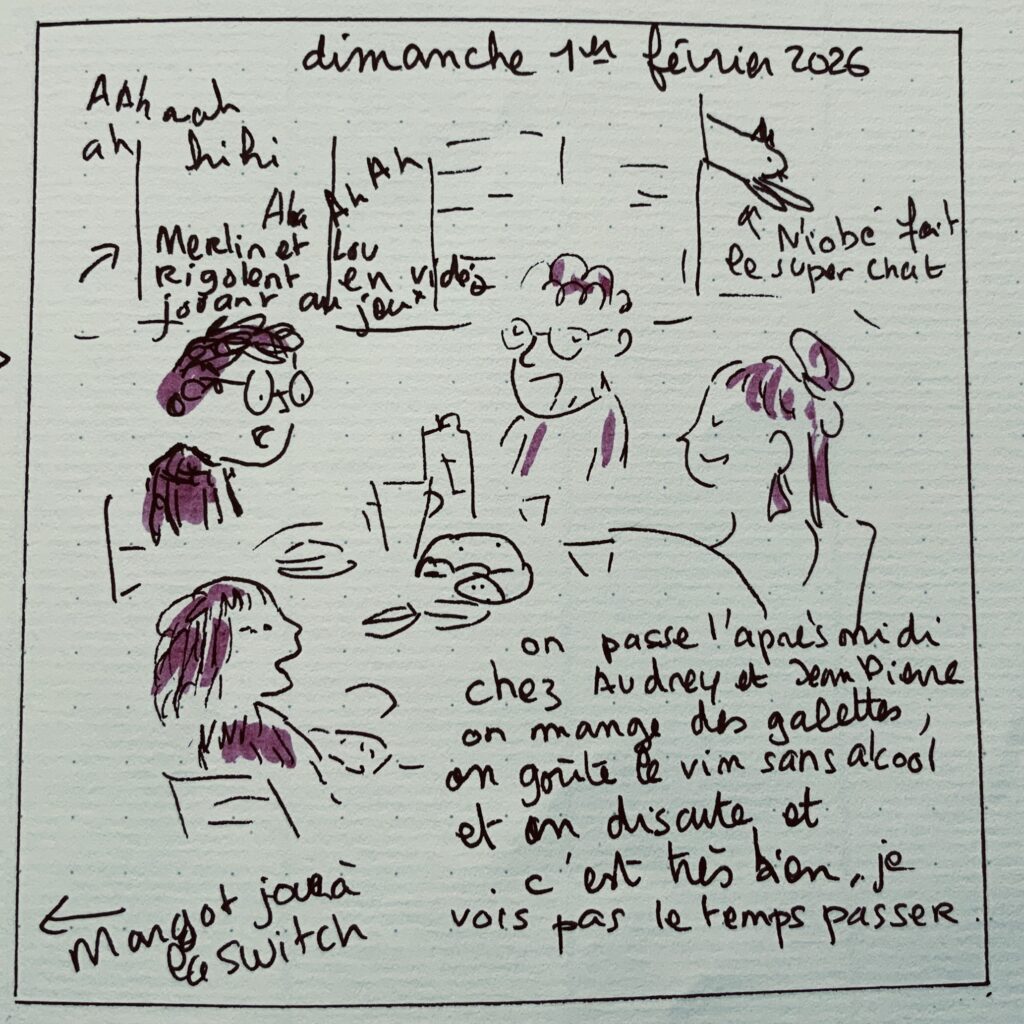 dimanche 1er février 2026
AAh aah
ah
hihi
Aha Ah Ah
Merlin et Lou
Rigolent en vidéo
jouant au jeu
Niobé fait
le super chat
on passe l'après midi
chez Audrey et Jean Pierre
on mange des galettes,
on goûte le vin sans alcool
et on discute, et
c'est très bien, je
vois pas le temps passer.
Margot joue à
la switch